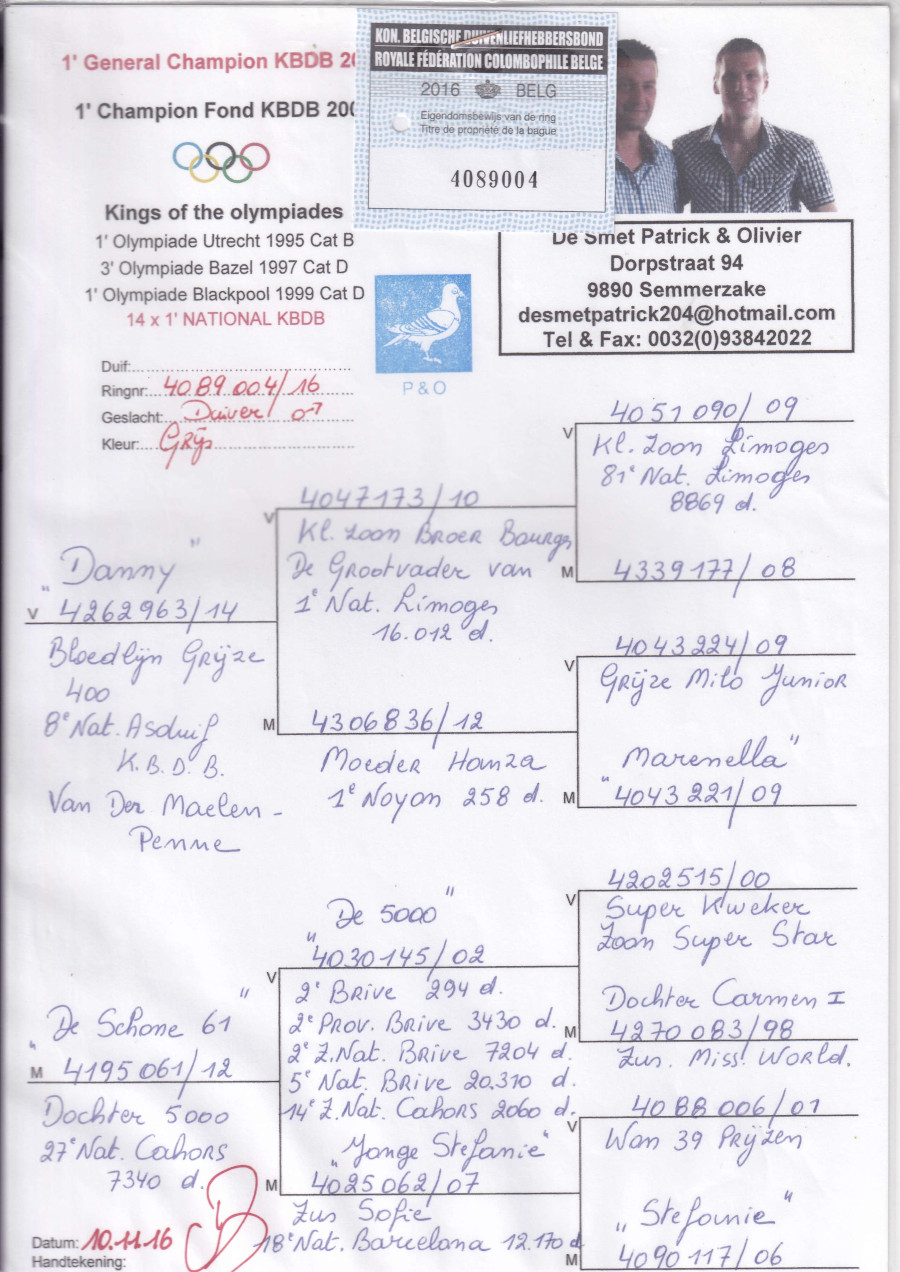 1' General Champion KBDB 20
1' Champion Fond KBDB 200
Kings of the olympiades
1' Olympiade Utrecht 1995 Cat B
3' Olympiade Bazel 1997 Cat D
1' Olympiade Blackpool 1999 Cat D
14 x 1' NATIONAL KBDB
KON. BELGISCHE DUIVENLIEFHEBBERSBOND
ROYALE FÉDÉRATION COLOMBOPHILE BELGE
2016 BELG
Eigendomsbewijs van de ring
Titre de propriété de la bague
4089004
De Smet Patrick & Olivier
Dorpstraat 94
9890 Semmerzake
desmetpatrick204@hotmail.com
Tel & Fax: 0032(0)93842022
P & O
Duif:
Ringnr: 4089004/16
Geslacht: Duiver ♂
Kleur: Grijs
"Danny"
V 4262963/14
Bloedlijn Grijze
400
8e Nat. Asduif
K.B.D.B.
Van Der Maelen-
Penne
4047173/10
V
Kl. Zoon Broer Bourges
De Grootvader van
1e Nat. Limoges
16.012 d.
4306836/12
M
Moeder Hamza
1e Noyon 258 d.
4051090/09
V
Kl. Zoon Limoges
81e Nat. Limoges
8869 d.
M 4339177/08
4043224/09
V
Grijze Milo Junior
"Marenella"
M 4043221/09
"De Schone 61"
M 4195061/12
Dochter 5000
27e Nat. Cahors
7340 d.
"De 5000"
4030145/02
V
2e Brive 294 d.
2e Prov. Brive 3430 d.
2e Z.Nat. Brive 7204 d.
5e Nat. Brive 20.310 d.
14e Z.Nat. Cahors 2060 d.
"Jonge Stefanie"
M 4025062/07
Zus Sofie
18e Nat. Barcelona 12.170 d
4202515/00
V
Super Kweker
Zoon Super Star
Dochter Carmen I
M 4270083/98
Zus. Miss. World.
4088006/01
V
Won 39 Prijzen
"Stefanie"
M 4090117/06
Datum: 10.11.16
Handtekening: